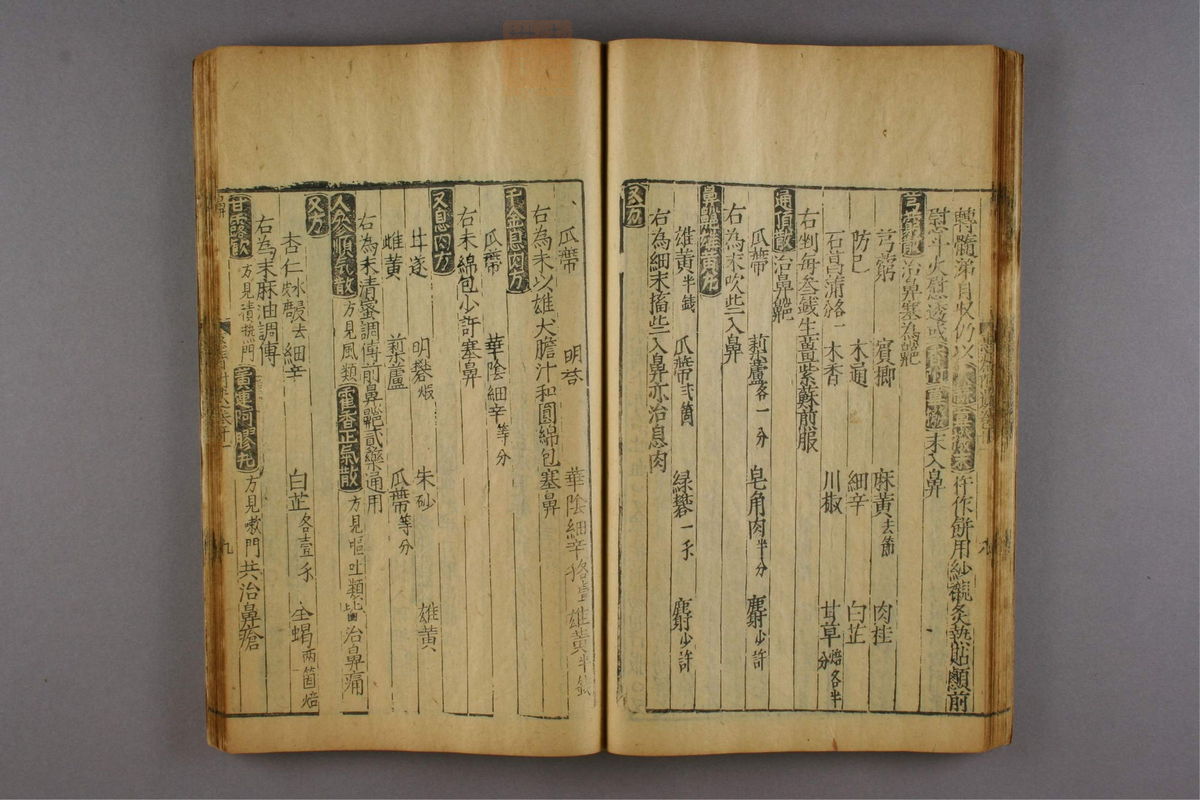 轉髓第月收仍以
作餅用紗襯灸熱貼顖前
熨斗火熨透或
末入鼻
芎藭散治鼻塞為齆
芎藭 賓榔 麻黃去節 肉桂
防已 木通 細辛 白芷
石昌蒲各一分 木香 川椒 甘草焙各半分
右剉每叁錢生薑紫蘇前服
通頂散治鼻齆
瓜蔕 䔧蘆各一分 皂角肉半分 麝少許
右為末吹些入鼻
鼻齆雄黃丸
雄黃半錢 瓜蔕弍箇 綠礬一錢 麝少許
右為細末搐些入鼻亦治息肉
又方
瓜蔕 明礬 華陰細辛各壹 雄黃半錢
右為末以雄犬膽汁和圓綿包塞鼻
千金息肉方
瓜蔕 華陰細辛等分
右末綿包少許塞鼻
又息肉方
甘遂 明礬煅 朱砂 雄黃
雌黃 䔧蘆 瓜蔕等分
右為末清蜜調傅前鼻齆貳藥通用
人參順氣散方見風類 藿香正氣散方見嘔吐類皆治鼻痛
又方
杏仁水浸去皮 細辛 白芷各壹錢 全蝎兩箇焙
右為末麻油調傅
甘露飲方見積熱門 黃連阿膠丸方見嗽門共治鼻瘡
九